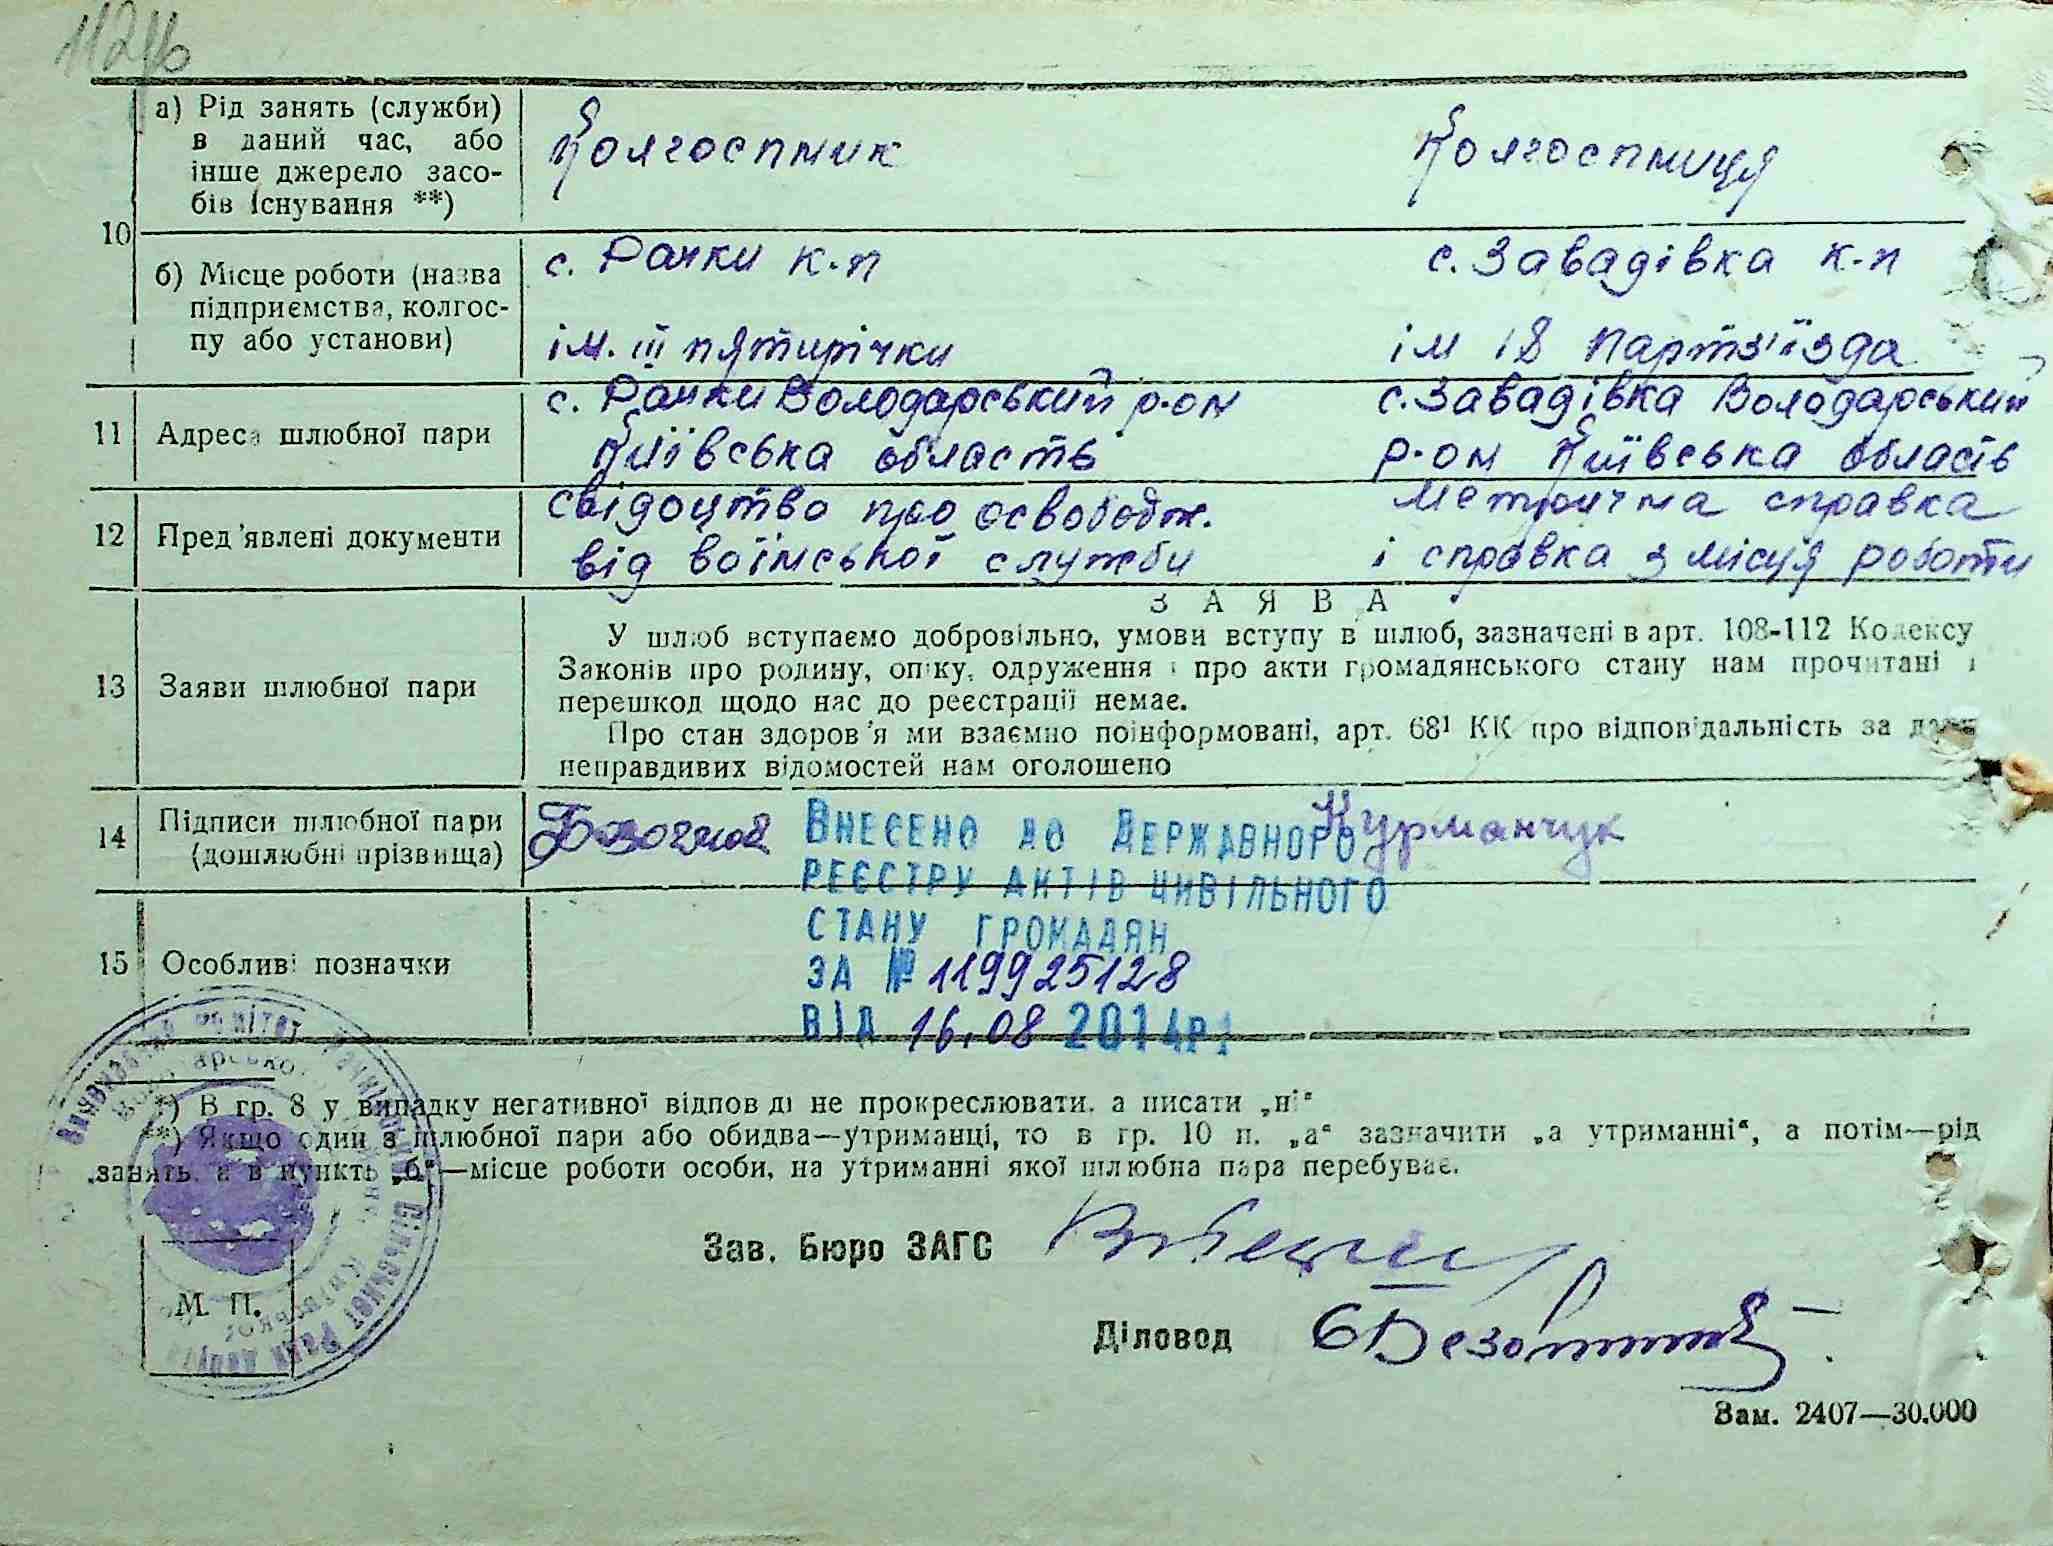 112
а) Рід занять (служби)
в даний час, або
інше джерело засо-
бів існування **)
Колгоспник
Колгоспниця
10
б) Місце роботи (назва
підприємства, колгос-
пу або установи)
с. Рачки к-п
ім. III пятирічки
с. Завадівка к-п
ім 18 Партз'їзда
11
Адреса шлюбної пари
с. Рачки Володарський р-он
Київська область
с. Завадівка Володарський
р-он Київська область
12
Пред'явлені документи
свідоцтво про освободж.
від воїнської служби
метрична справка
і справка з місця роботи
ЗАЯВА
13
Заяви шлюбної пари
У шлюб вступаємо добровільно, умови вступу в шлюб, зазначені в арт. 108-112 Кодексу
Законів про родину, опіку, одруження і про акти громадянського стану нам прочитані і
перешкод щодо нас до реєстрації немає.
Про стан здоров'я ми взаємно поінформовані, арт. 68¹ КК про відповідальність за дачу
неправдивих відомостей нам оголошено
14
Підписи шлюбної пари
(дошлюбні прізвища)
Курманчук
Внесено до Державного
реєстру актів цивільного
стану громадян
за № 119925128
від 16.08 2014р.
15
Особливі позначки
Виконавчий комітет Рачківської Сільської Ради
Володарського
Київської
*) В гр. 8 у випадку негативної відповіді не прокреслювати, а писати „ні“
**) Якщо один з шлюбної пари або обидва—утриманці, то в гр. 10 п. „а“ зазначити „а утриманні“, а потім—рід
занять, а в пункть „б“—місце роботи особи, на утриманні якої шлюбна пара перебуває.
М. П.
Зав. Бюро ЗАГС
Діловод
Зам. 2407—30.000